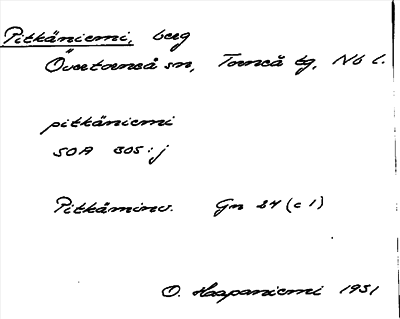 Pitkäniemi, berg
Övertorneå sn, Torneå tg, Nb l.
pitkäniemi
SOA 805:j
Pitkäminv. Gn 24 (c 1)
O. Haapaniemi 1931